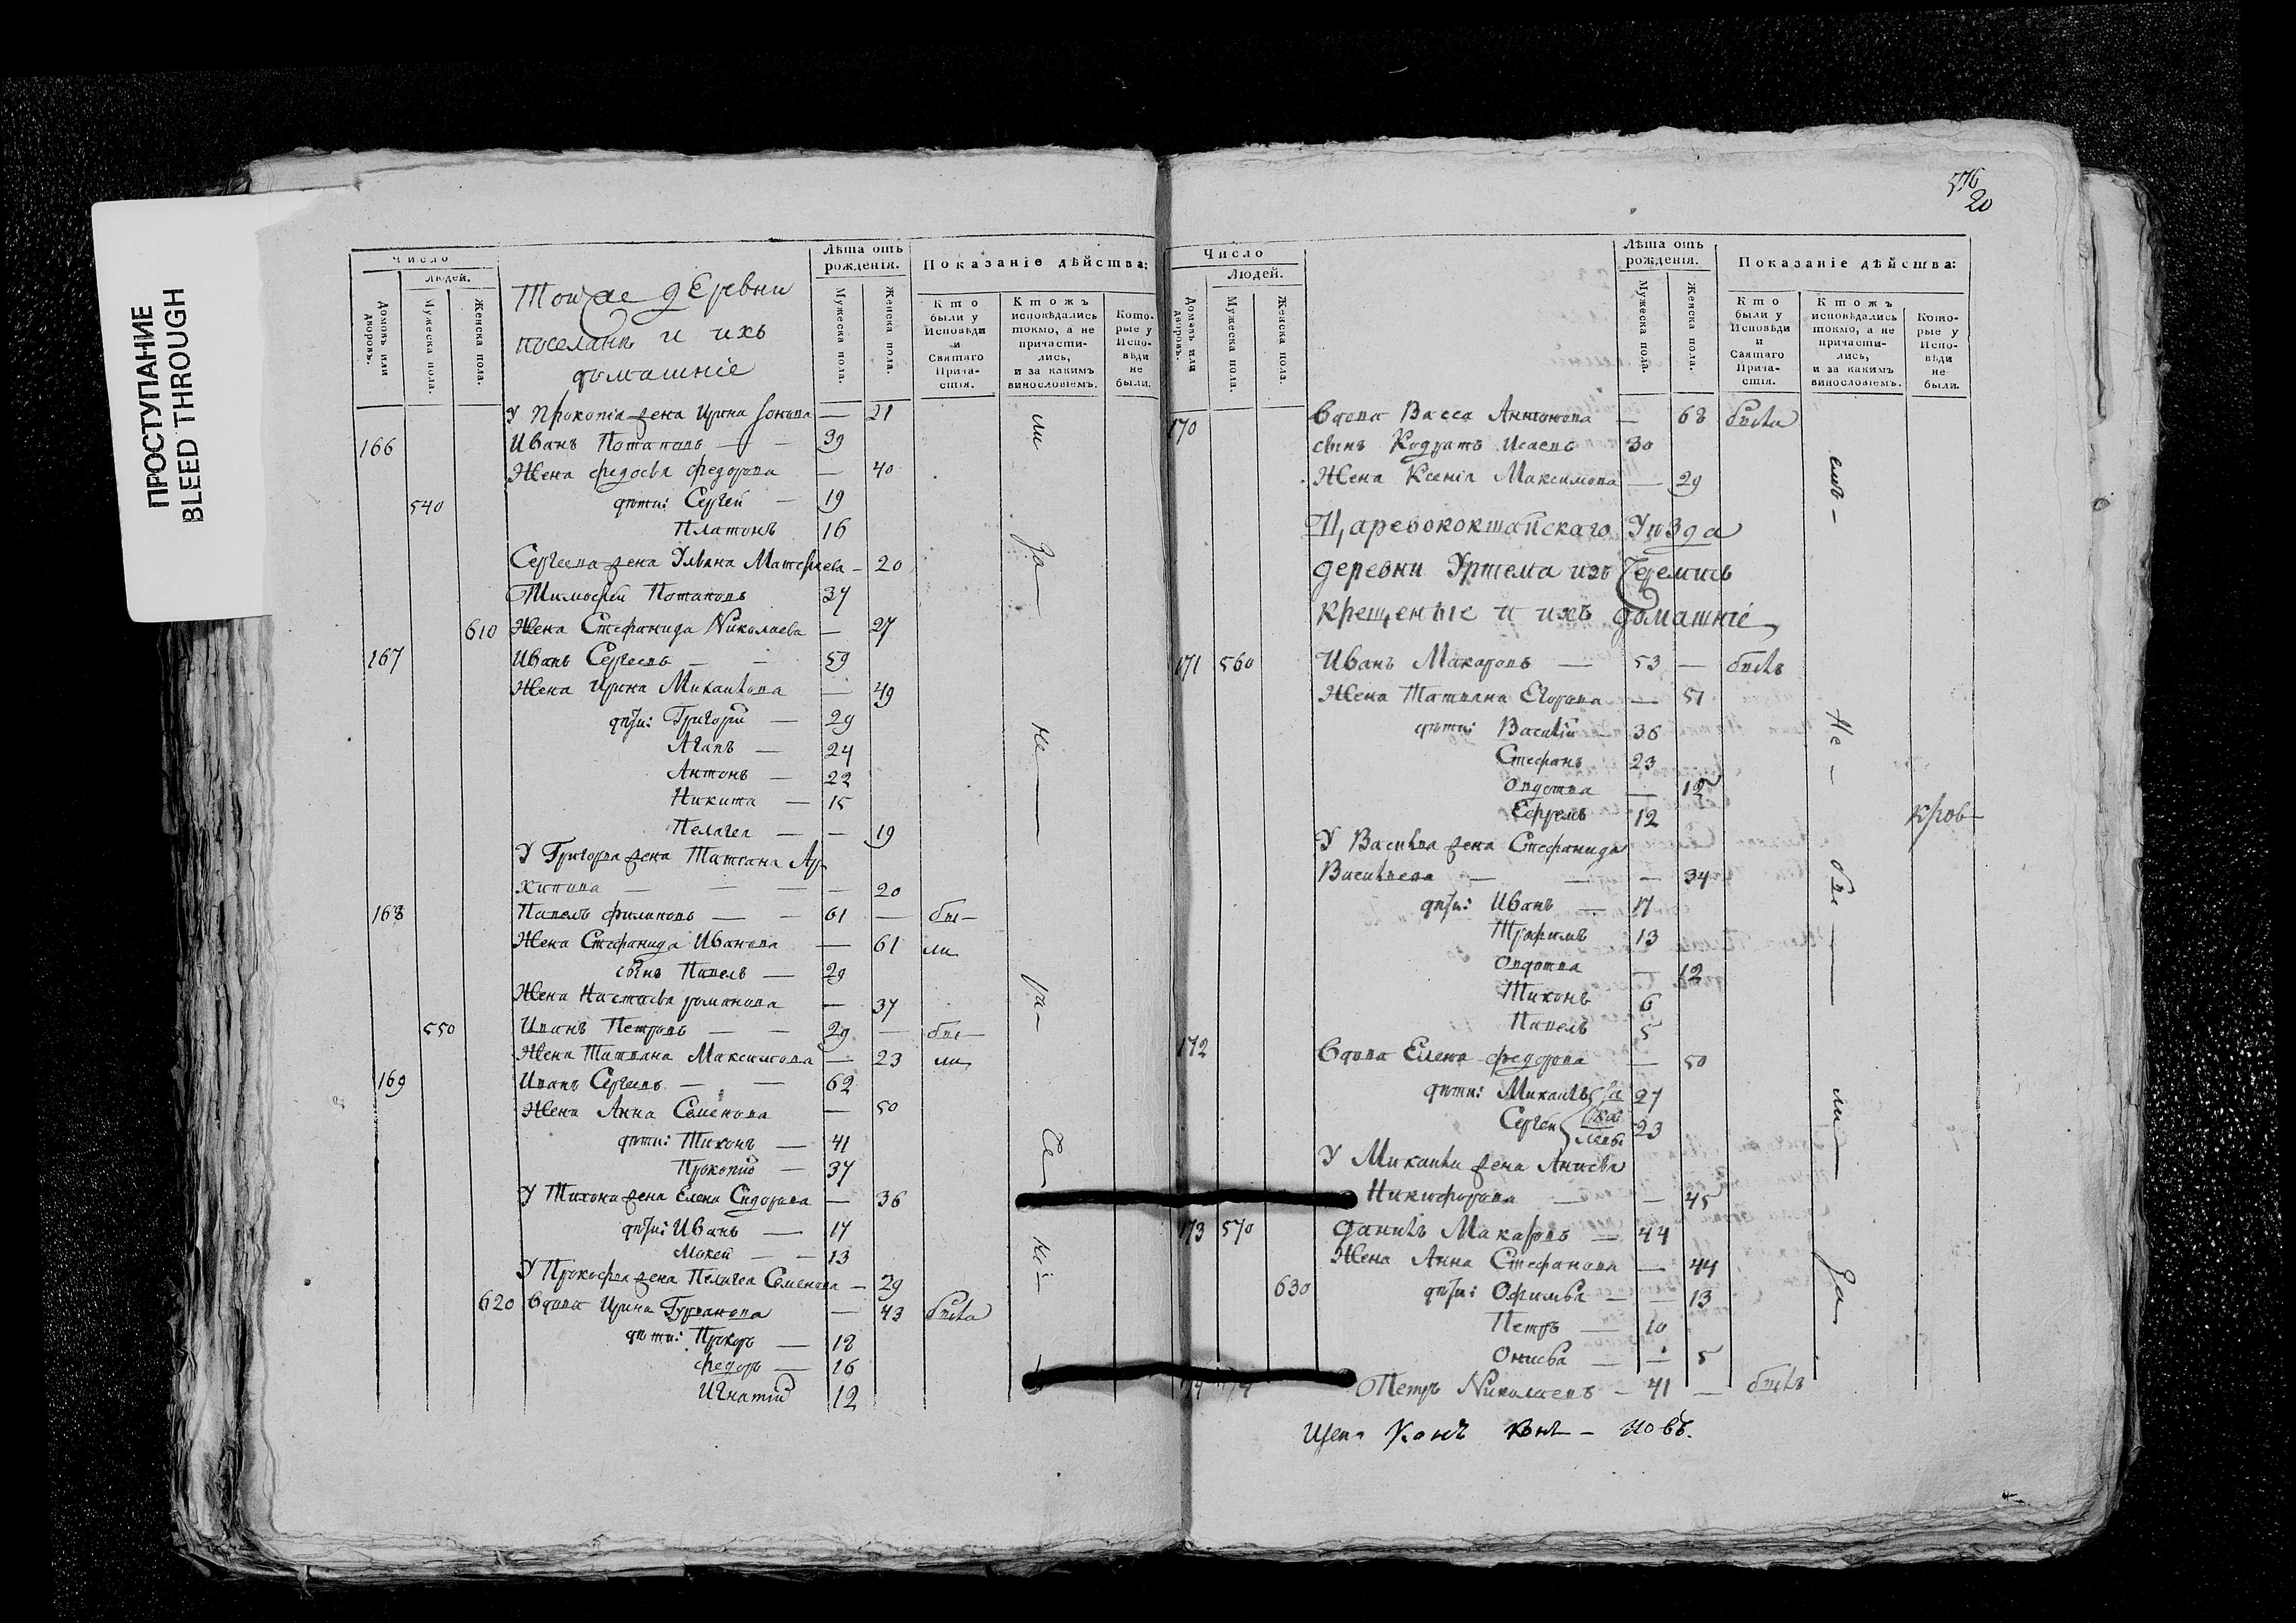 ПРОСТУПАНИЕ
BLEED THROUGH
576
20
Число
Людей.
Домовъ или дворовъ.
Мужеска пола.
Женска пола.
Тойже деревни
поселянъ и ихъ
домашніе
Лѣта отъ рожденія.
Мужеска пола.
Женска пола.
Показаніе дѣйства:
Кто были у Исповѣди и Святаго Причастія.
Ктожъ исповѣдались токмо, а не причастились, и за какимъ винословіемъ.
Которые у Исповѣди не были.
У Прокопія жена Ирина — 21
166 Иванъ Потаповъ — 39
Жена Федосья Федорова — 40
540 дѣти: Сергей — 19
Платонъ 16
Сергеева жена Ульяна Матфѣева — 20
Тимофей Потаповъ 37
610 Жена Стефанида Николаева — 27
167 Иванъ Сергеевъ — — 59
Жена Ирина Михайлова — 49
дѣти: Григорій — 29
Агапъ — 24
Антонъ — 22
Никита — 15
Пелагея — — 19
У Григорья жена Татіана Ар-
хипова — — — — 20
168 Павелъ Филиповъ — — 61 — бы-
Жена Стефанида Иванова — 61 ли
сынъ Павелъ — 29
Жена Настасья Романова — 37
550 Иванъ Петровъ — — 29 — бы-
Жена Татьяна Максимова — 23 ли
169 Иванъ Сергеевъ — — 62
Жена Анна Семенова — 50
дѣти: Тихонъ — 41
Прокопій — 37
У Тихона жена Елена Сидорова — 36
дѣти: Иванъ — 17
Мокей — — 13
У Прокофья жена Пелагея Семенова — 29
620 Вдова Ирина — 43 была
дѣти: Прохоръ — 18
Федоръ — 16
Игнатій 12
ли
За
не
ра-
Се-
Число
Людей.
Домовъ или дворовъ.
Мужеска пола.
Женска пола.
Лѣта отъ рожденія.
Мужеска пола.
Женска пола.
Показаніе дѣйства:
Кто были у Исповѣди и Святаго Причастія.
Ктожъ исповѣдались токмо, а не причастились, и за какимъ винословіемъ.
Которые у Исповѣди не были.
170 Вдова Васса Антонова — 68 была
сынъ Кодратъ Исаевъ 30
Жена Ксенія Максимова — 29
Царевококшайскаго Уѣзда
деревни Уртема изъ Черемисъ
крещеные и ихъ домашніе
171 560 Иванъ Макаровъ — 53 — былъ
Жена Татьяна Егорова — 51
дѣти: Василій — 36
Стефанъ 23
Овдотья — 12
Ефремъ 12
У Василья жена Стефанида
Васильева — — — 34
дѣти: Иванъ — 17
Трофимъ 13
Овдотья — 12
Тихонъ 6
Павелъ 5
172 Вдова Елена Федорова — 50
дѣти: Михайлъ 27
Сергей 23
У Михайла жена Анисья
Никифорова — — 45
173 570 Данилъ Макаровъ — 44
Жена Анна Стефанова — 44
630 дѣти: Офимья — — 13
Петръ — 10
Онисья — — 5
174 Петръ Николаевъ — 41 — былъ
Не —
бы
ли
За
кров-